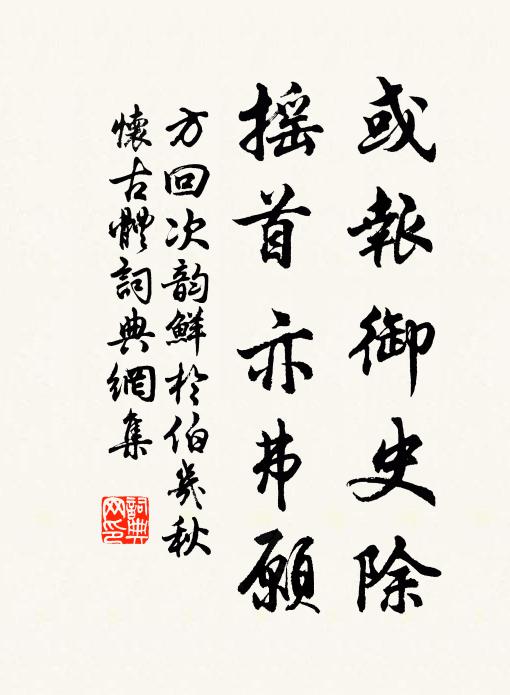 或報御史除
搖首亦弗願
方回次韵鮮於伯幾秋
懷古體詞典網集
詞典
网印